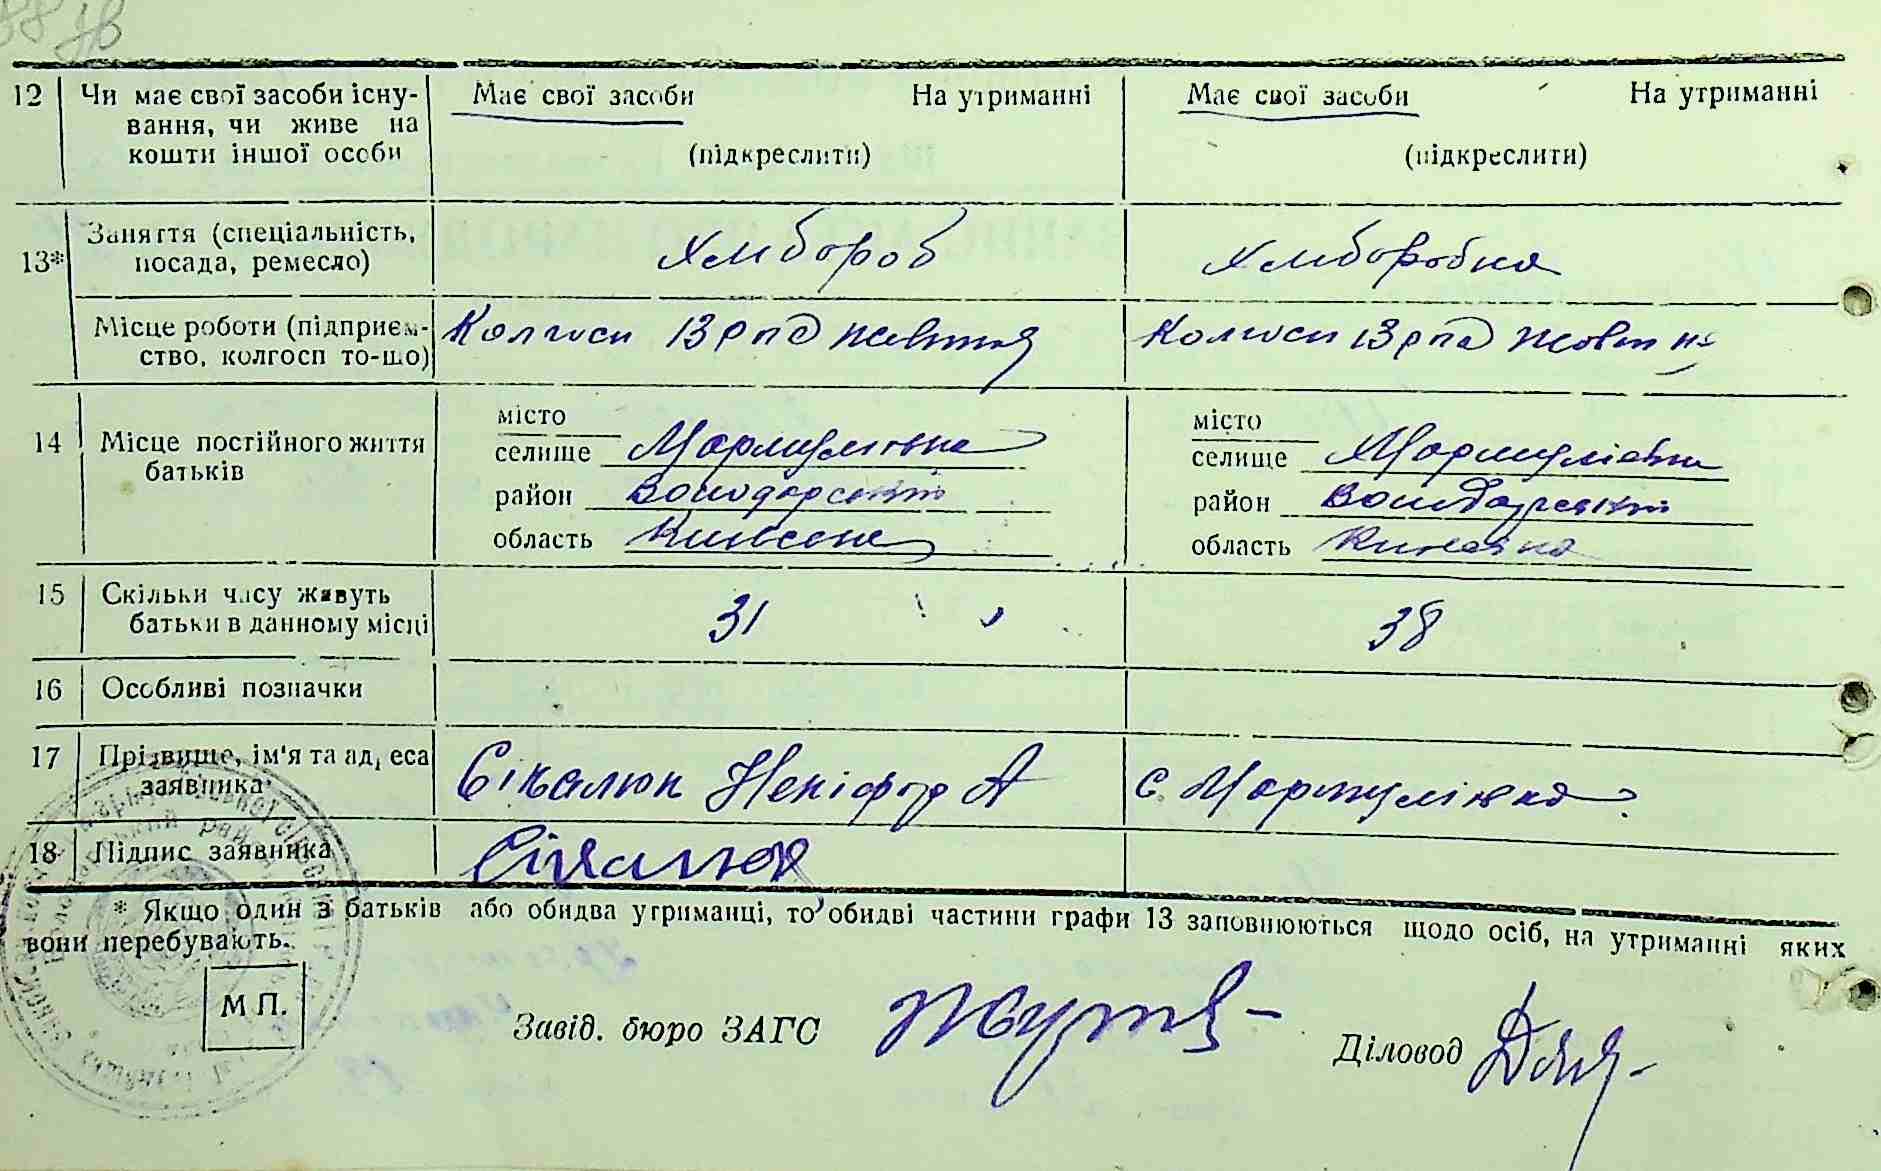 12 Чи має свої засоби існу- Має свої засоби На утриманні Має свої засоби На утриманні
вання, чи живе на
кошти іншої особи (підкреслити) (підкреслити)
13* Заняття (спеціальність, Хлибороб Хлиборобка
посада, ремесло)
Місце роботи (підприєм- Колгосп 13 р жовтня Колгосп 13 р жовтня
ство, колгосп то-що)
місто місто
14 Місце постійного життя селище Мормулівка селище Мормулівка
батьків район Володарський район Володарський
область Київська область Київська
15 Скільки часу живуть 31 38
батьки в данному місці
16 Особливі позначки
17 Прізвище, ім'я та адреса Сікалюк Некіфор А с. Мормулівка
заявника
18 Підпис заявника Сікалюк
* Якщо один з батьків або обидва утриманці, то обидві частини графи 13 заповнюються щодо осіб, на утриманні яких
вони перебувають.
М.П. Завід. бюро ЗАГС Діловод